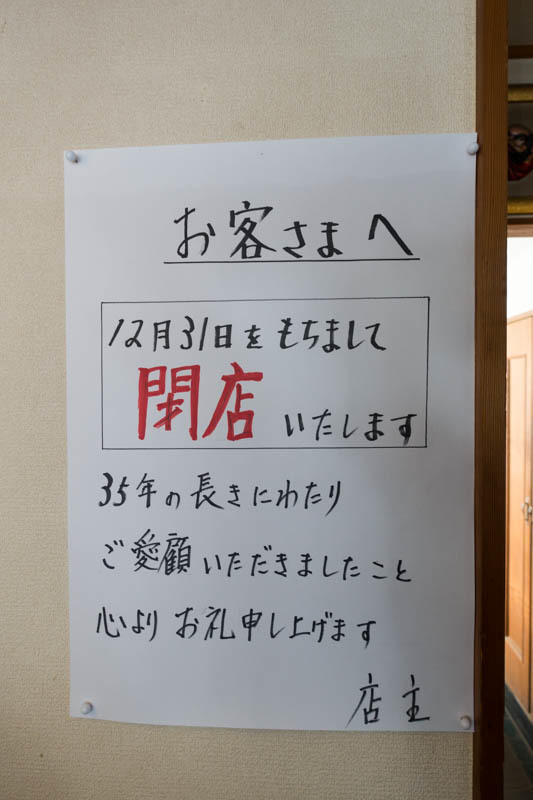 お客さまへ
12月31日をもちまして
閉店いたします
35年の長きにわたり
ご愛顧いただきましたこと
心よりお礼申し上げます
店主